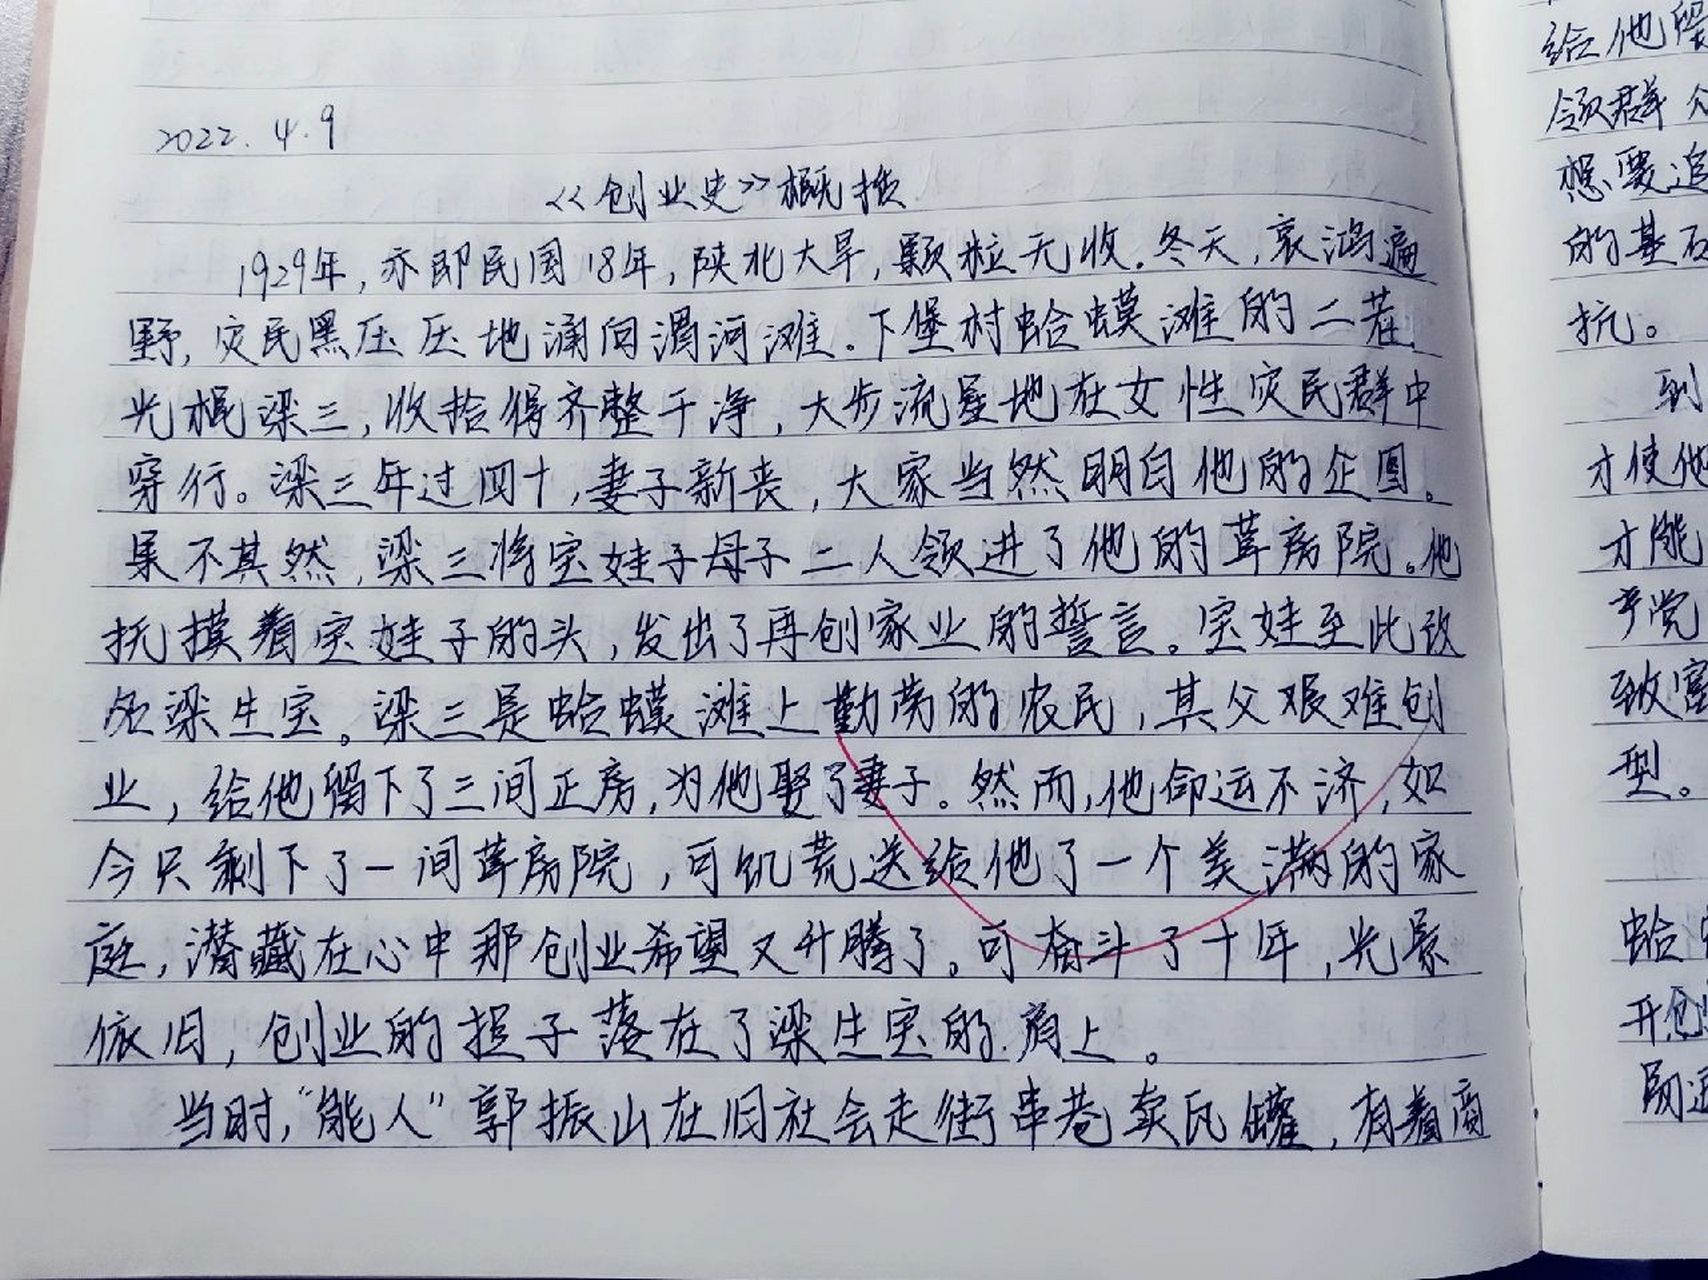 2022.4.9
《创业史》概括
1929年,亦即民国18年,陕北大旱,颗粒无收.冬天,哀鸿遍
野,灾民黑压压地涌向渭河滩.下堡村蛤蟆滩的二茬
光棍梁三,收拾得齐整干净,大步流星地在女性灾民群中
穿行。梁三年过四十,妻子新丧,大家当然明白他的企图。
果不其然,梁三将宝娃子母子二人领进了他的茸房院。他
抚摸着宝娃子的头,发出了再创家业的誓言。宝娃至此改
名梁生宝。梁三是蛤蟆滩上勤劳的农民,其父艰难创
业,给他留下了三间正房,为他娶了妻子。然而,他命运不济,如
今只剩下了一间茸房院,可饥荒送给他了一个美满的家
庭,潜藏在心中那创业希望又升腾了。可奋斗了十年,光景
依旧,创业的担子落在了梁生宝的肩上。
当时,“能人”郭振山在旧社会走街串巷卖瓦罐,有着商
给他留
领群众
想要追
的基石
抗。
到
才使他
才能
产党
致富
型。
蛤
开创